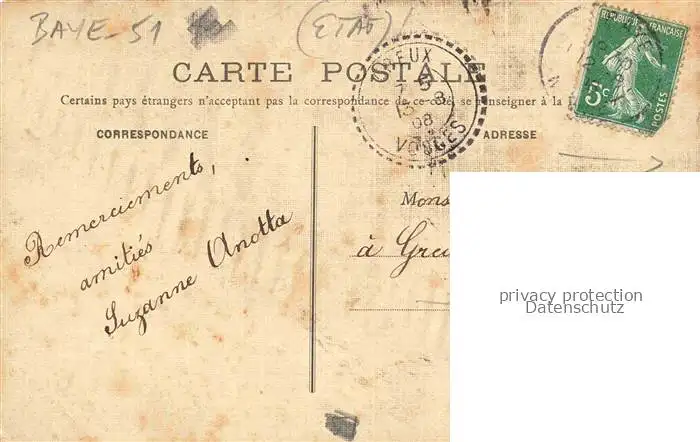 BAYE-51 (ETAT)
REPUBLIQUE FRANÇAISE
5c
POSTES
CARTE POSTALE
Certains pays étrangers n'acceptant pas la correspondance de ce côté, se renseigner à la
GREUX
7
13
3
08
VOSGES
CORRESPONDANCE
ADRESSE
Remerciements,
amitiés
Suzanne Anotta
Mons
à Greu
privacy protection
Datenschutz